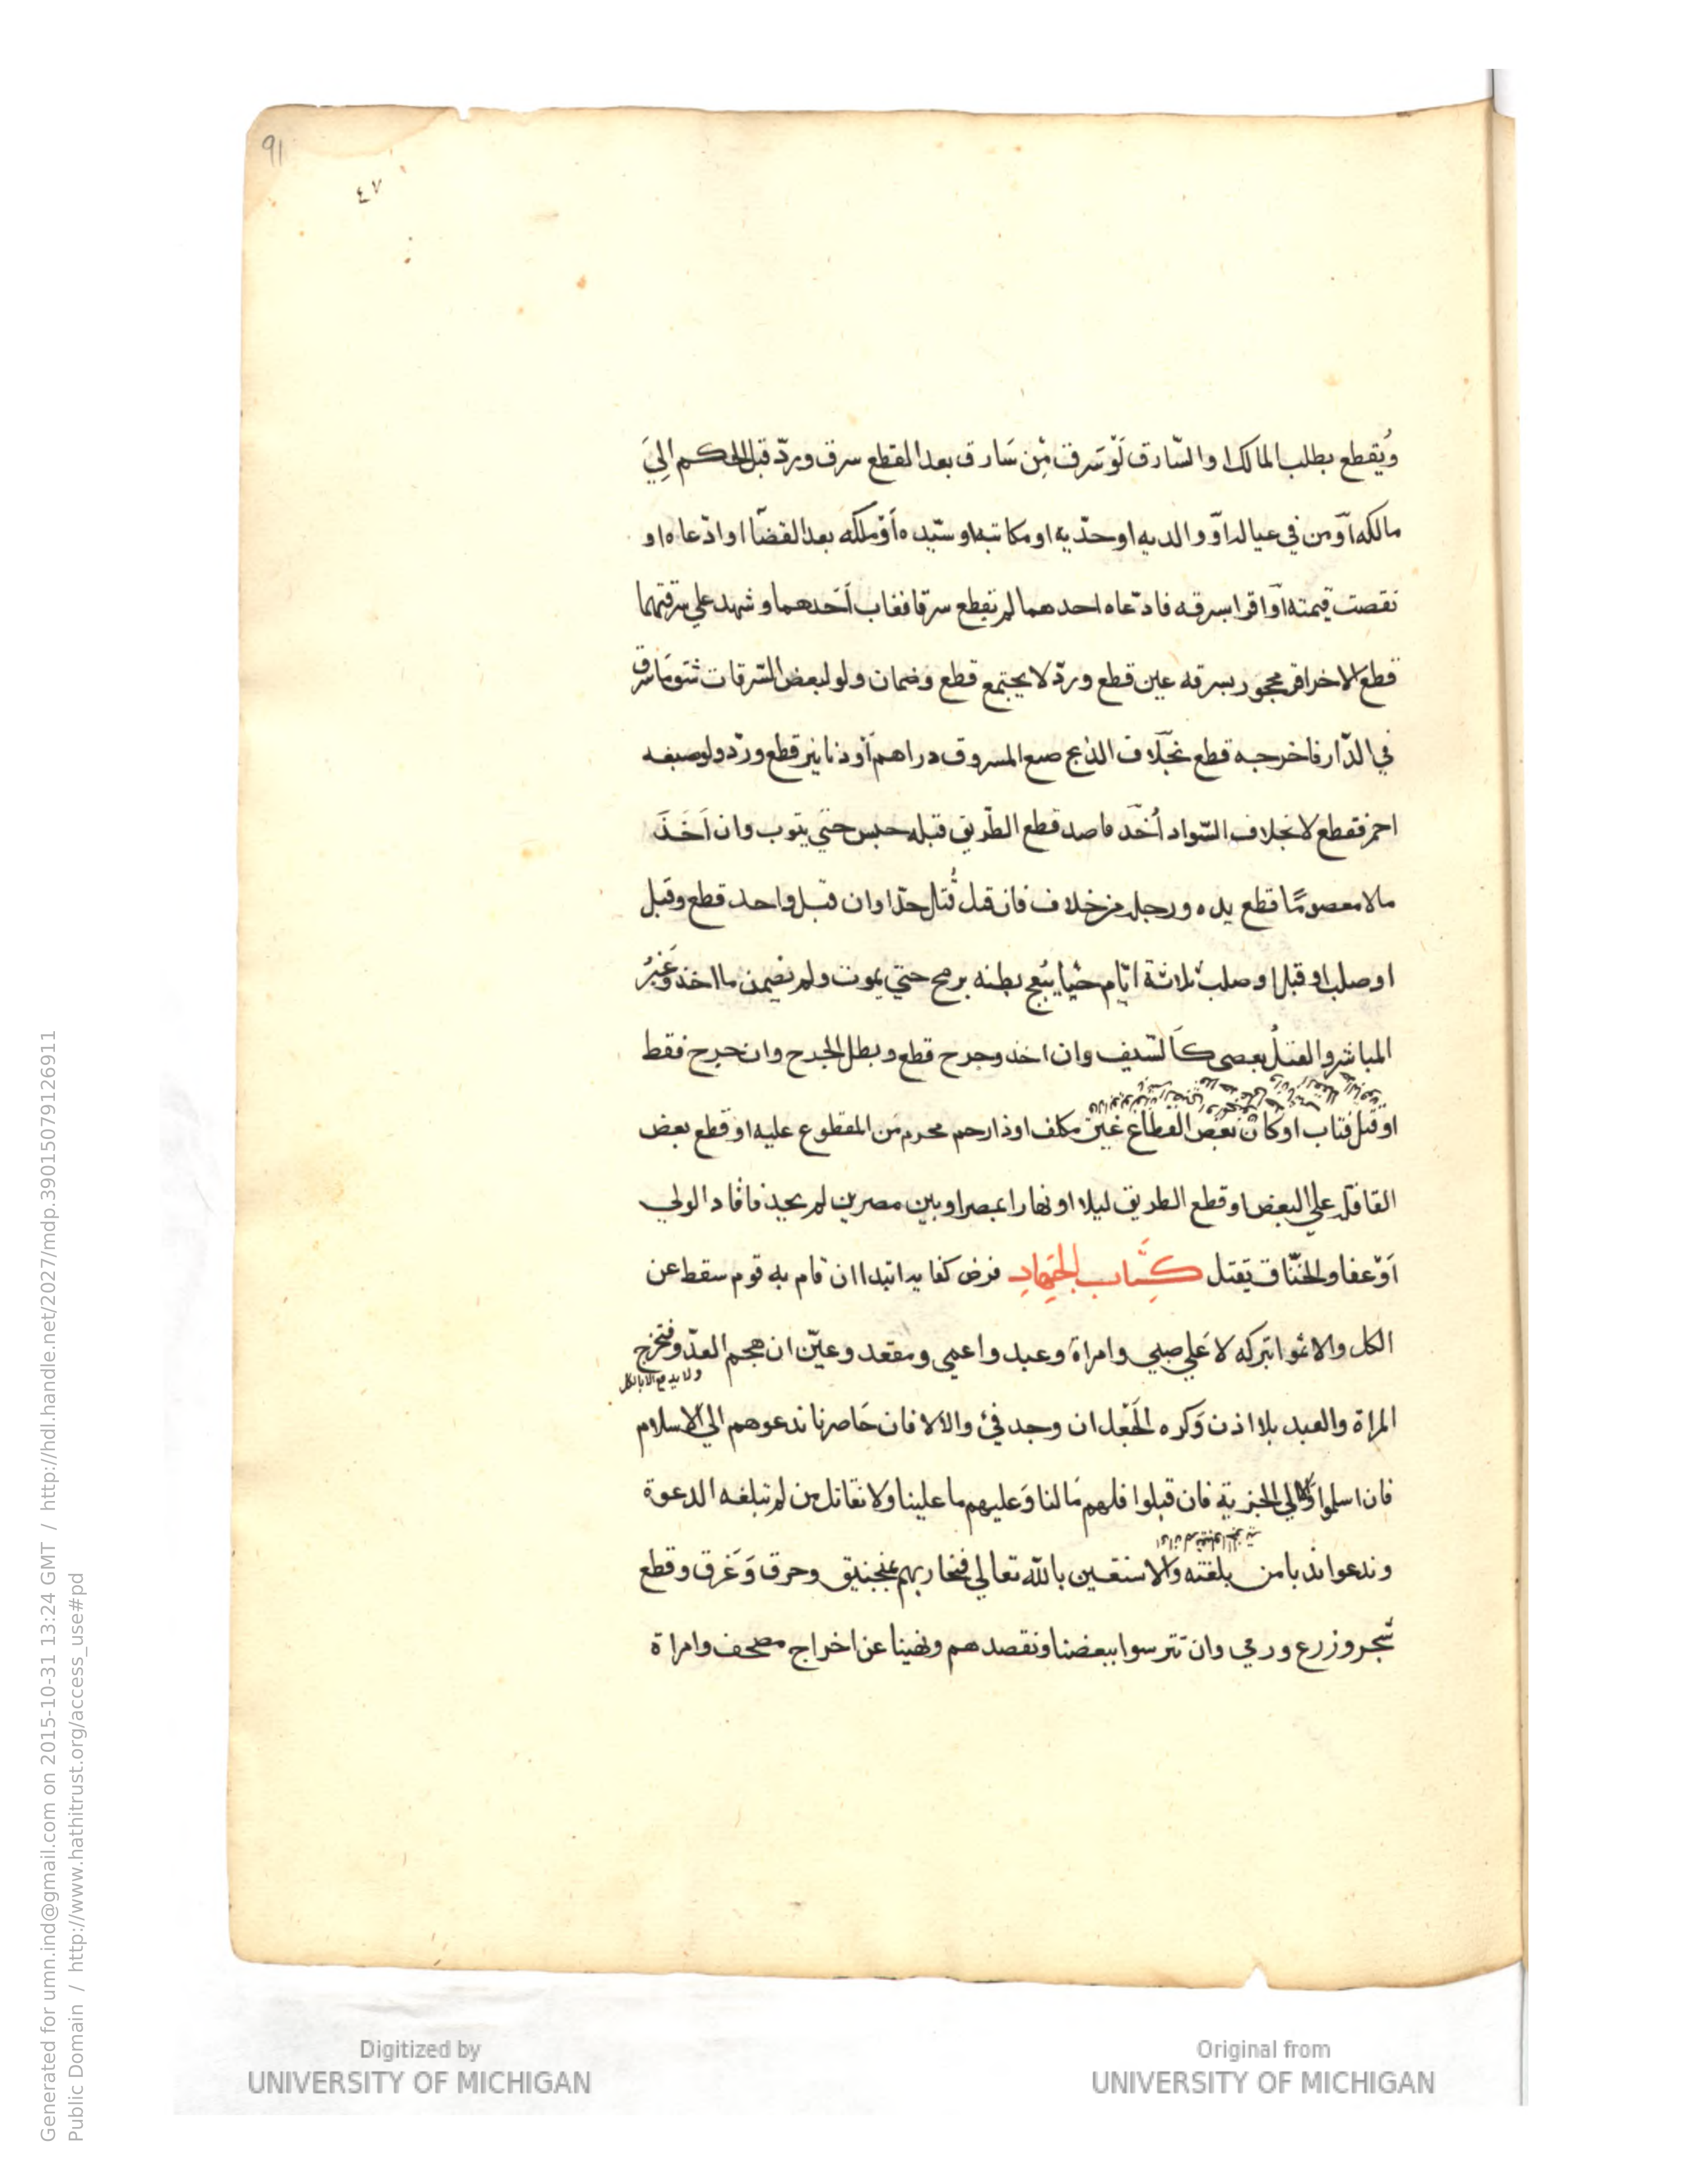 91
٤٧
ويُقطع بطلب المالك او السّارق لَوْ سَرق مْن سَارق بعد القطع سرق وردّ قبل الحكم اليَ
مالكه اَوْ من في عياله اَوْ والديه او حدّيه او مكاتبه او سيّده اَوْ ملكه بعد القضَا او ادّعاه او
نقصت قيمته اَوْ اقرا بسرقه فادّعاه احدهما لم يقطع سرقا فغاب اَحدهما وشهد علي سرقتهما
قطع الاخر اقر محجور بسرقه عين قطع وردّ لا يجتمع قطع وضمان ولو لبعض السّرقات شق ما سرق
في الدّار فاخرجه قطع بخلاف الذبح صنع المسروق دراهم اَوْ دنانير قطع وردّ ولو صبغه
احمر فقطع لا بخلاف السّواد اُخذ قاصد قطع الطّريق قبله حبس حتي يتوب وان اَخَذَ
مالا معصومًا قطع يده ورجله من خلاف فان قتل قُتل حدّا وان قتل واحد قطع وقتل
او صلب او قتل او صلب ثلاثة ايّام حيّا يُبعج بطنه برمح حتي يموت ولم يضمن ما اخذ وغَيرُ
المباشر والقتلُ بعصى كاَلسّيف وان اخذ وجرح قطع وبطل الجرح وان جرح فقط
او قتل فتاب او كان بعض القطاع غير مكلف او ذا رحم محرم مَن المقطوع عليه او قطع بعض
القافله علي البعض او قطع الطريق ليلا او نهارا بمصر او بين مصرين لم يحد فاقاد الولي
اَوْ عفا والخنّاق يقتل كِتَاب الجهَادِ فرض كفايه ابتدا ان قام به قوم سقط عن
الكل والا اثموا بتركه لا عَلي صبي وامراة وعبد واعمي ومقعد وعيّن ان هجم العدّو فتخرج
ولا يدفع الا بالكل
المراة والعبد بلا اذن وَكره الجَعل ان وجد فئ والالا فان حَاصرنا ندعوهم الي الاسلام
فان اسلموا والا الي الجزية فان قبلوا فلهم مَا لنا وَعليهم ما علينا ولا نقاتل من لم تبلغه الدعوة
وندعوا ندبا من بلغته والا نستعين بالله تعالي فنحاربهم بمنجنيق وحرق وَغَرق وقطع
شجر وزرع ورمي وان تترسوا ببعضنا ونقصدهم ونهينا عن اخراج مصحف وامراة
Digitized by
UNIVERSITY OF MICHIGAN
Original from
UNIVERSITY OF MICHIGAN
Generated for umn.ind@gmail.com on 2015-10-31 13:24 GMT / http://hdl.handle.net/2027/mdp.39015079126911
Public Domain / http://www.hathitrust.org/access_use#pd